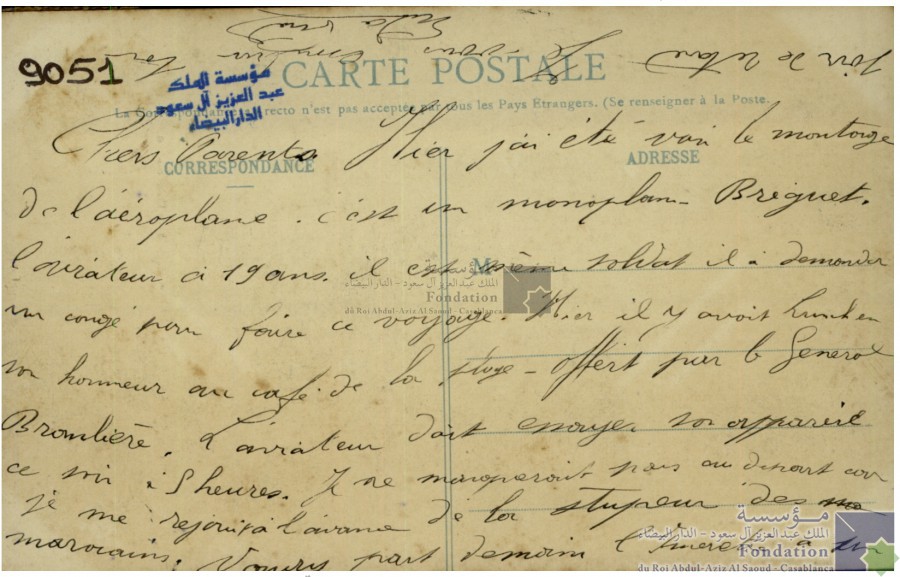 9051
مؤسسة الملك
عبد العزيز آل سعود
الدار البيضاء
CARTE POSTALE
La Correspondance recto n'est pas acceptée par tous les Pays Etrangers. (Se renseigner à la Poste.
CORRESPONDANCE
ADRESSE
M
Chers Parents Hier jai été voir le montage
de l'aéroplane. c'est un monoplan Bréguet.
l'aviateur a 19 ans. il est même soldat il a demander
un congé pour faire ce voyage. Hier il y avoit lunch en
son honneur au café de la plage - offert par le General
Bromlière. L'aviateur doit essayer son appareil
ce soir à 5 heures. Je ne manquerait pas au depart car
je me rejouit à l'avance de la stupeur des
marocains. part demain
مؤسسة
الملك عبد العزيز آل سعود – الدار البيضاء
Fondation
du Roi Abdul-Aziz Al Saoud - Casablanca
مؤسسة
الملك عبد العزيز آل سعود – الدار البيضاء
Fondation
du Roi Abdul-Aziz Al Saoud - Casablanca